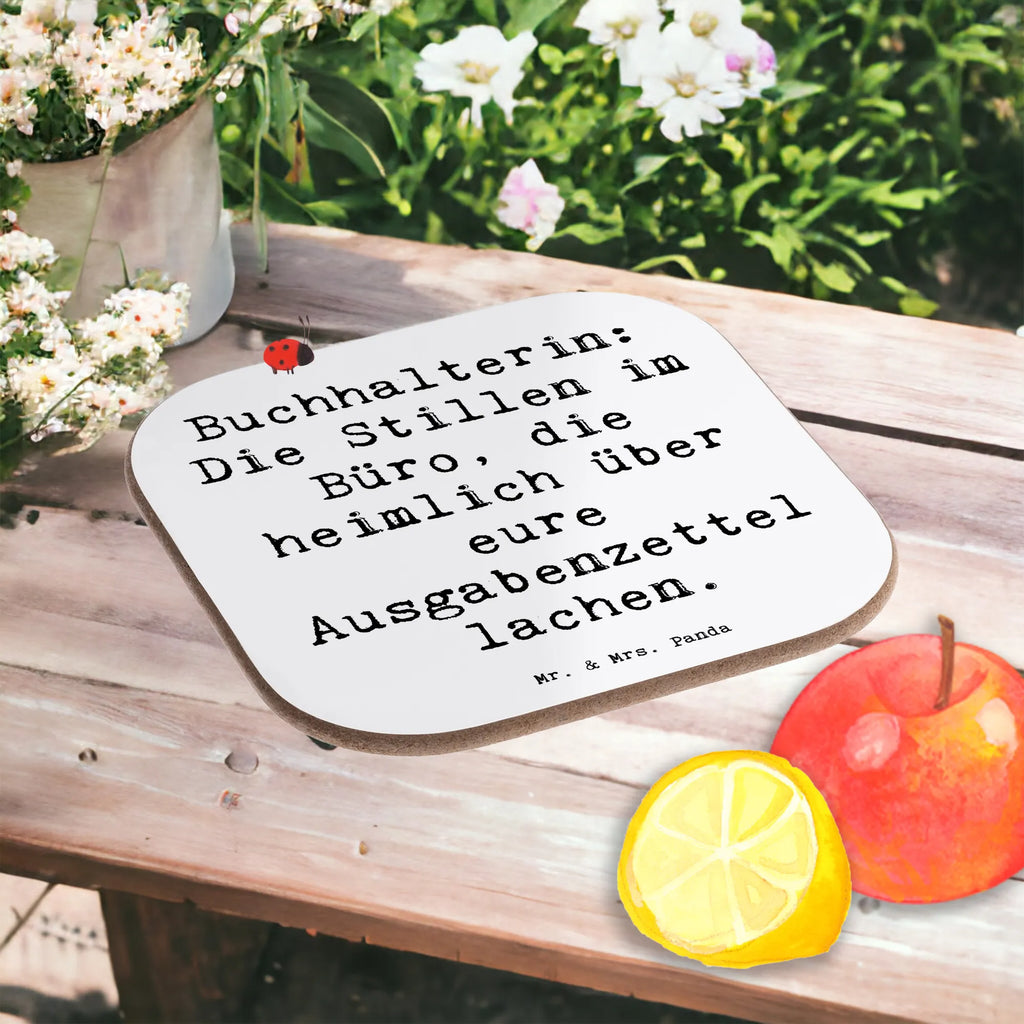 Buchhalterin:
Die Stillen im
Büro, die
heimlich über
eure
Ausgabenzettel
lachen.
Mr. & Mrs. Panda